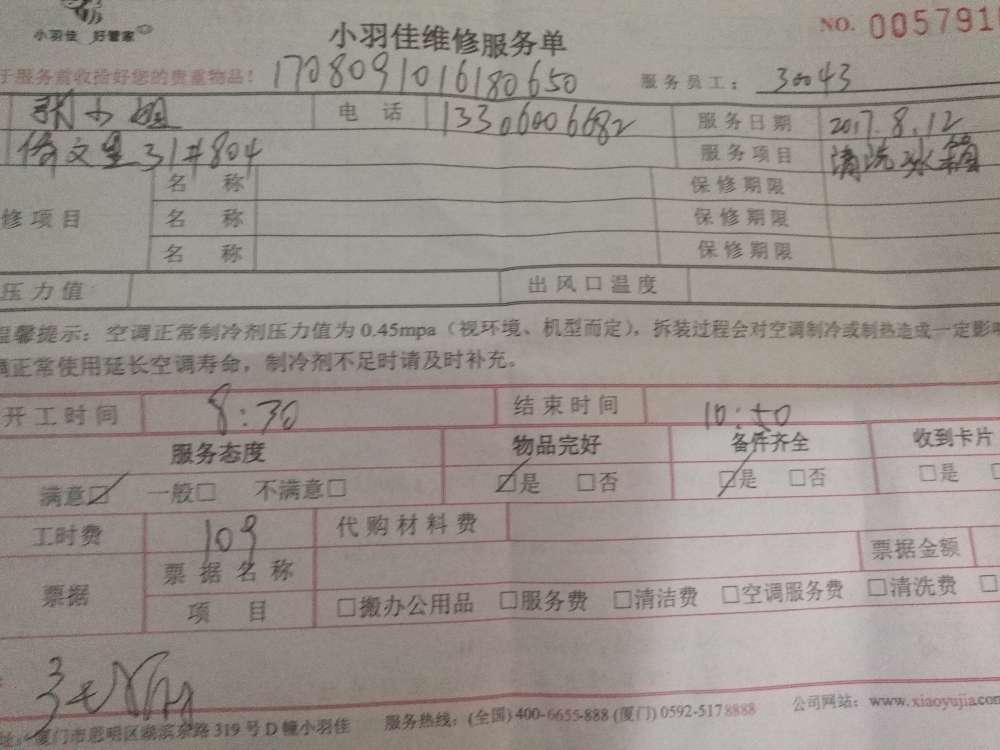 小羽佳 好管家
小羽佳维修服务单
NO. 005791
于服务前收拾好您的贵重物品!
1708091016180650
服务员工: 30043
张小姐 电话 13306006682 服务日期 2017.8.12
倚文里31#804 服务项目 清洗冰箱
修项目 名称 保修期限
名称 保修期限
名称 保修期限
压力值 出风口温度
温馨提示: 空调正常制冷剂压力值为 0.45mpa (视环境、机型而定), 拆装过程会对空调制冷或制热造成一定影响
调正常使用延长空调寿命, 制冷剂不足时请及时补充。
开工时间 8:30 结束时间 10:50
服务态度 物品完好 备件齐全 收到卡片
满意☑ 一般□ 不满意□ ☑是 □否 ☑是 □否 □是
工时费 109 代购材料费
票据 票据名称 票据金额
项目 □搬办公用品 □服务费 □清洁费 □空调服务费 □清洗费
址: 厦门市思明区湖滨东路 319 号 D 幢小羽佳 服务热线: (全国) 400-6655-888 (厦门) 0592-5178888 公司网站: www.xiaoyujia.com